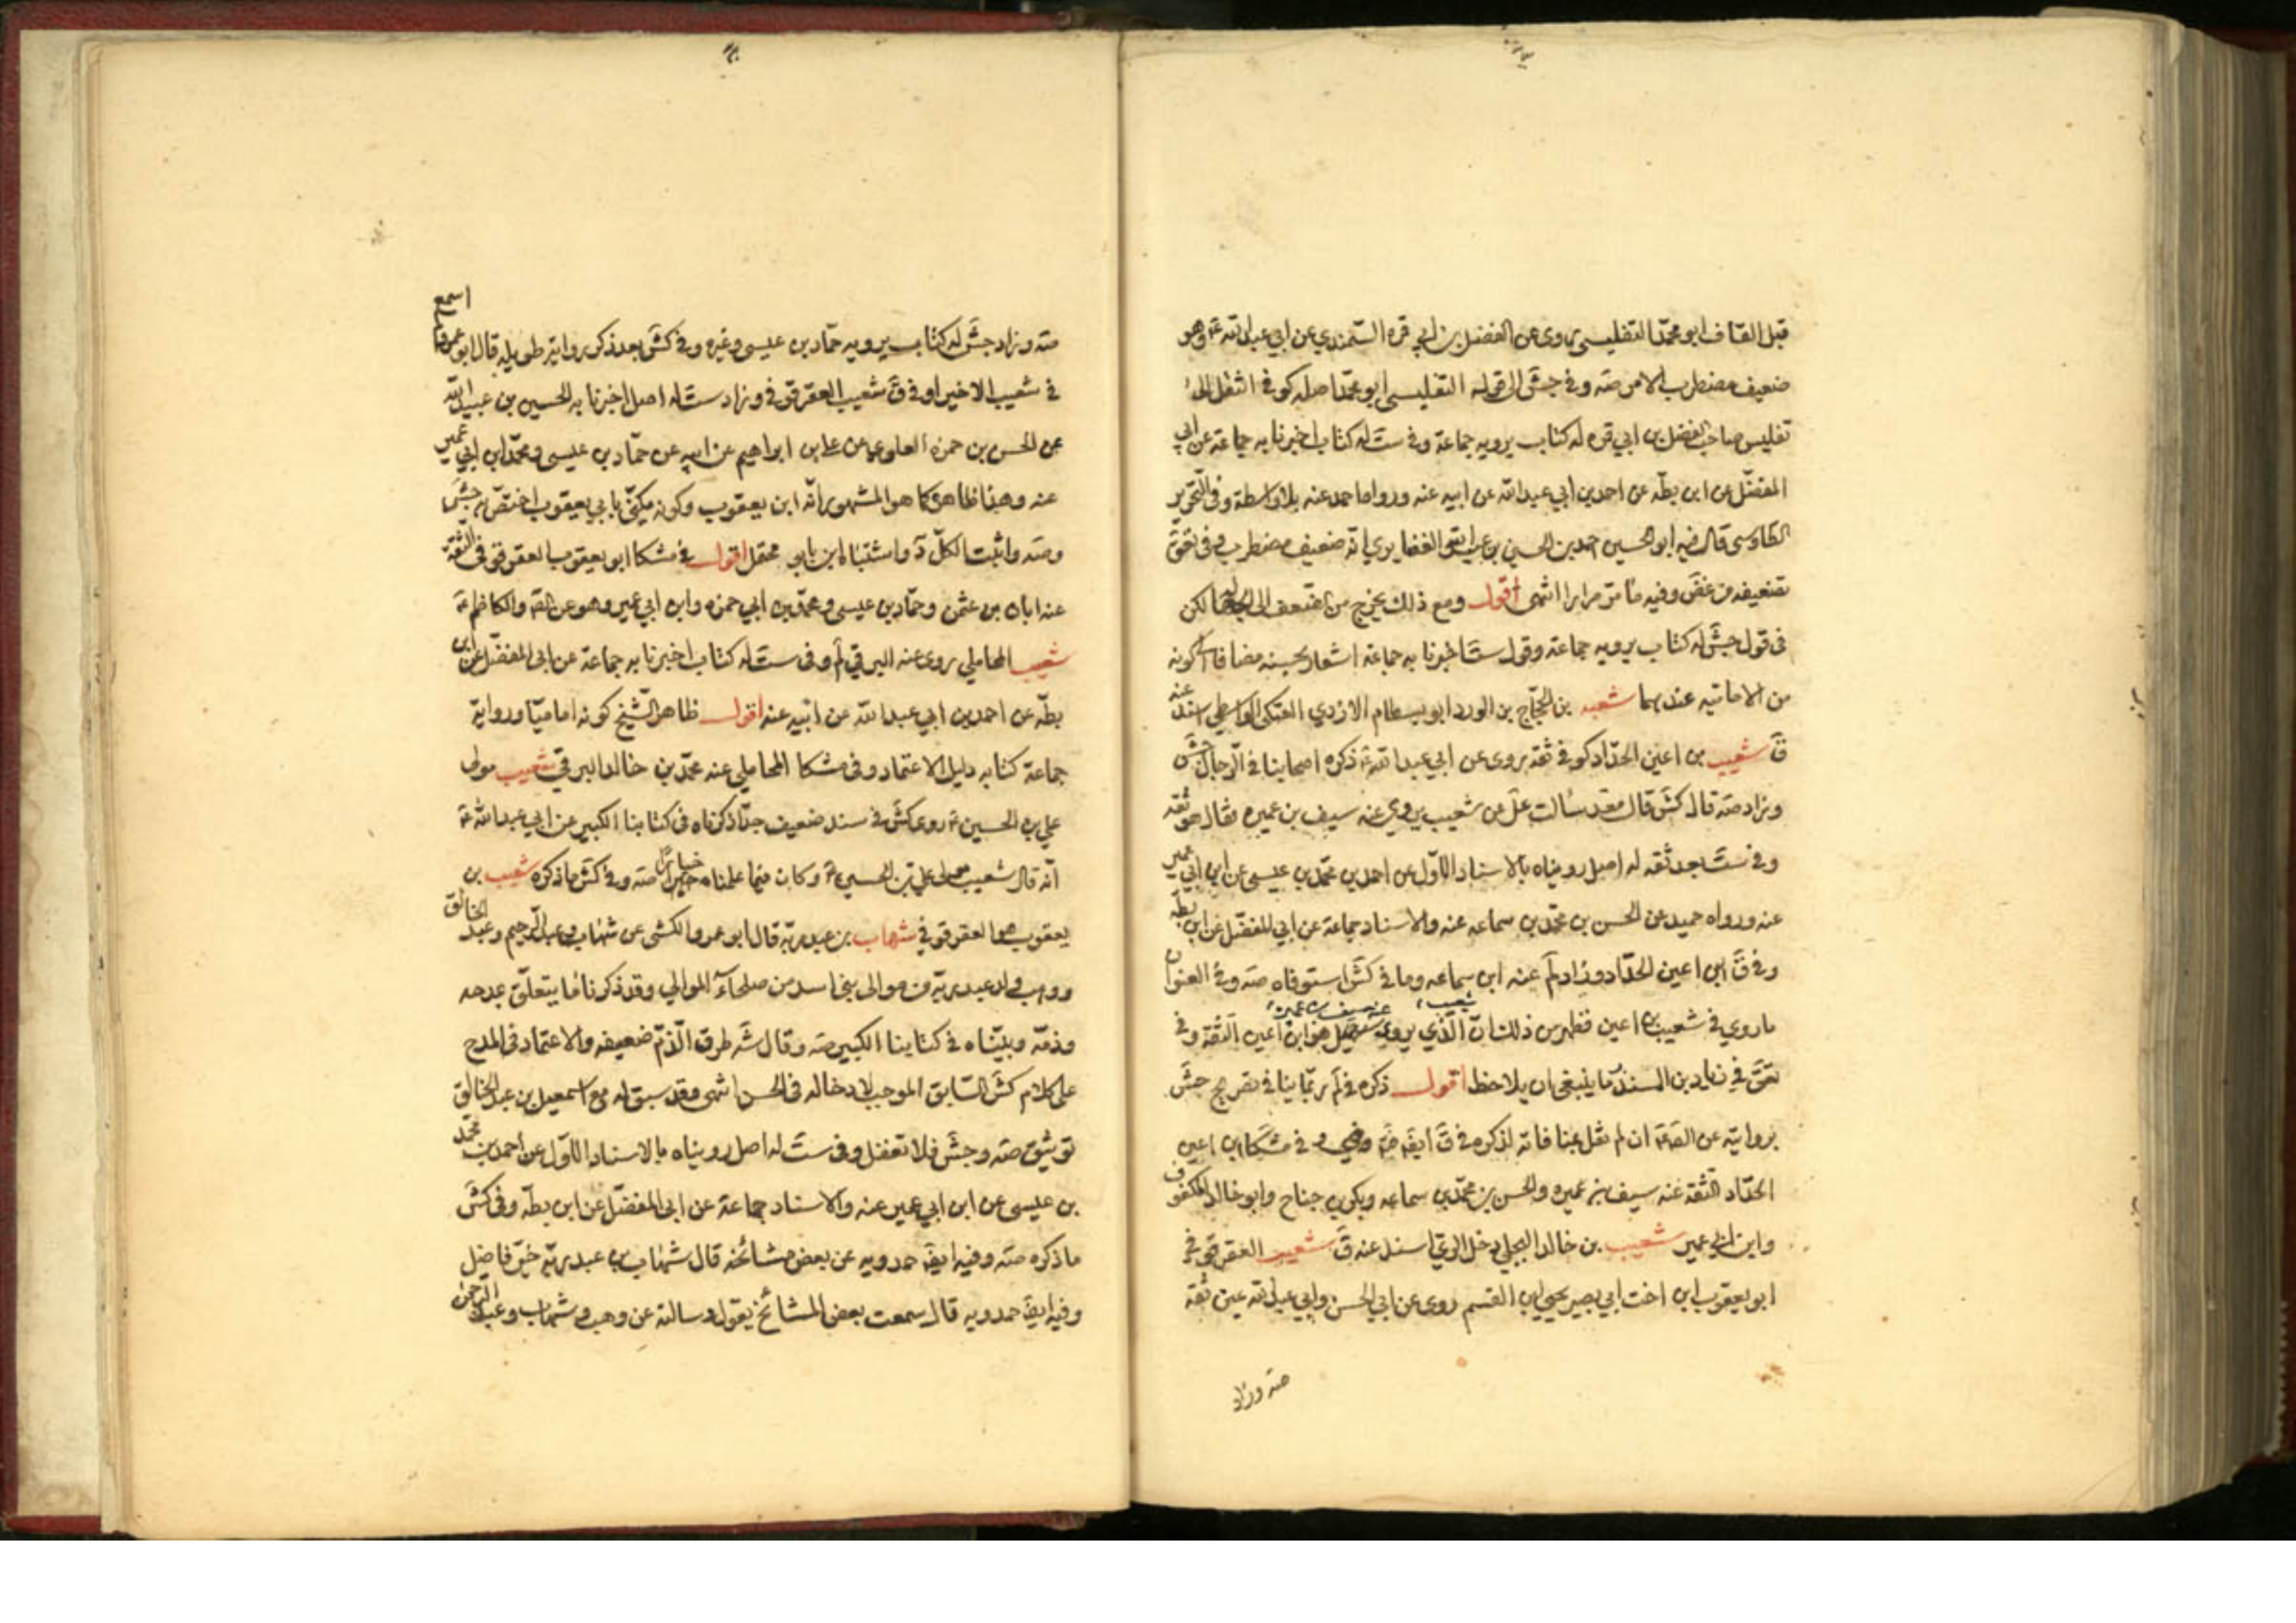 قبل القاف ابو محمّد التفليسى روى عن الفضل بن ابي قره السّمندي عن ابي عبد الله ع وهو
ضعيف مضطرب الامر صه وفي جش الى قوله التفليسى ابو محمّد اصله كوفي انتقل الى
تفليس صاحب الفضل بن ابي قره له كتاب يرويه جماعة وفي ست له كتاب اخبرنا به جماعة عن ابي
المفضّل عن ابن بطّه عن احمد بن ابي عبد الله عن ابيه عنه ورواه احمد عنه بلا واسطة وفي التّحرير
الطّاوسى قال فيه ابو الحسين احمد بن الحسين بن عبيد الله الغضايري انّه ضعيف مضطرب وفي تعق
تضعيفه من غض وفيه ما مرّ مرارا انتهى اقول ومع ذلك يخرج من الضعف الى لكن
في قول جش له كتاب يرويه جماعة وقول ست اخبرنا به جماعة اشعار بحسنه مضافا الى كونه
من الاماميّه عندهما شعبه بن الحجّاج بن الورد ابو بسطام الازدي العتكي الواسطي اسند عنه
ق شعيب بن اعين الحدّاد كوفي ثقة يروى عن ابي عبد الله ع ذكره اصحابنا في الرّجال جش
وزاد صه قال كش قال محمد سألت على عن شعيب يروي عنه سيف بن عميره فقال هو ثقه
وفي ست حد ثقه له اصل رويناه بالاسناد الاوّل عن احمد بن محمّد بن عيسى عن ابن ابي عمير
عنه ورواه حميد عن الحسن بن محمّد بن سماعه عنه والاسناد جماعة عن ابي المفضّل عن ابن بطّه
وفي ق ابن اعين الحدّاد وزاد لم عنه ابن سماعه وما في كش استوفاه صه وفي العنوان
ماروي في شعيب بن اعين فظهر من ذلك انّ الّذي يروي عنه سيف بن عميره شعيب هو ابن اعين الثّقة وفي
تعق في زياد بن المنذر ما ينبغى ان يلاحظ اقول ذكره في لم ربّما ينافي تصريح جش
بروايته عن الصّ ع ان لم نقل بمنافاته لذكره في ق ايضا في مشكا ابن اعين
الحدّاد الثّقة عنه سيف بن عميره والحسن بن محمّد بن سماعه وبكر بن جناح وابو خالد المكفوف
وابن ابي عمير شعيب بن خالد البجلي دخل الرّي اسند عنه ق شعيب العقرقوفي
ابو يعقوب ابن اخت ابي بصير يحيى بن القسم روى عن ابي الحسن وابي عبد الله عين ثقة
صه وزاد
صه وزاد جش له كتاب يرويه حمّاد بن عيسى وغيره وفي كش بعد ذكر رواية طويله قال ابو عمرو ما اسمع
في شعيب الا خيرا وفي ق شعيب العقرقوفي وزاد ست له اصل اخبرنا به الحسين بن عبيد الله
عن الحسن بن حمزه العلوي عن على بن ابراهيم عن ابيه عن حمّاد بن عيسى ومحمّد بن ابي عمير
عنه وهذا ظاهر كما هو المشهور انّه ابن يعقوب وكونه مكنّى بابي يعقوب اختصّ به جش
وصه واثبت الكلّ د واشتباه ابن بابي محتمل اقول في مشكا ابو يعقوب العقرقوفي الثّقة
عنه ابان بن عثمن وحمّاد بن عيسى ومحمّد بن ابي حمزه وابن ابي عمير وهو عن الصّ والكاظم ع
شعيب المحاملي روى عنه البرقي لم وفي ست له كتاب اخبرنا به جماعة عن ابى المفضّل عن ابن
بطّه عن احمد بن ابي عبد الله عن ابيه عنه اقول ظاهر الشّيخ كونه اماميّا ورواية
جماعة كتابه دليل الاعتماد وفى مشكا المحاملي عنه محمّد بن خالد البرقي شعيب مولى
علي بن الحسين ع روى كش في سند ضعيف جدّا ذكرناه في كتابنا الكبير عن ابي عبد الله ع
انّه قال شعيب مولى علي بن الحسين ع وكان فيما علمناه خيارا صه وفي كش ما ذكره شعيب بن
يعقوب هو العقرقوفي شهاب بن عبد ربّه قال ابو عمرو الكشى عن شهاب وعبد الرّحيم وعبد الخالق
ووهب ولد عبد ربّه من موالى بنى اسد من صلحآء الموالي وقد ذكرنا ما يتعلّق بمدحه
وذمّه وبيّنّاه في كتابنا الكبير صه وقال شه طرق الّذمّ ضعيفه والاعتماد فى المدح
على كلام كش السّابق الموجب لادخاله فى الحسن انتهى وقد سبق له مع اسمعيل بن عبد الخالق
توثيق صه وجش فلا تغفل وفى ست له اصل رويناه بالاسناد الاوّل عن احمد بن محمّد
بن عيسى عن ابن ابي عمير عنه والاسناد جماعة عن ابى المفضّل عن ابن بطّه وفى كش
ما ذكره صه وفيه ايضا حمدويه عن بعض مشائخه قال شهاب بن عبد ربّه خيّر فاضل
وفيه ايضا حمدويه قال سمعت بعض المشائخ يقول وسالته عن وهب وشهاب وعبد الرّحمن